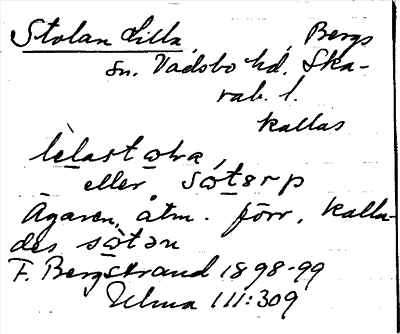 Stolan Lilla, Bergs
sn. Vadsbo hd. Ska-
rab. l.
kallas
lelastola,
eller sotərp
Ägaren, åtm. förr, kalla-
des sotən
F. Bergstrand 1898-99
Ulma 111:309